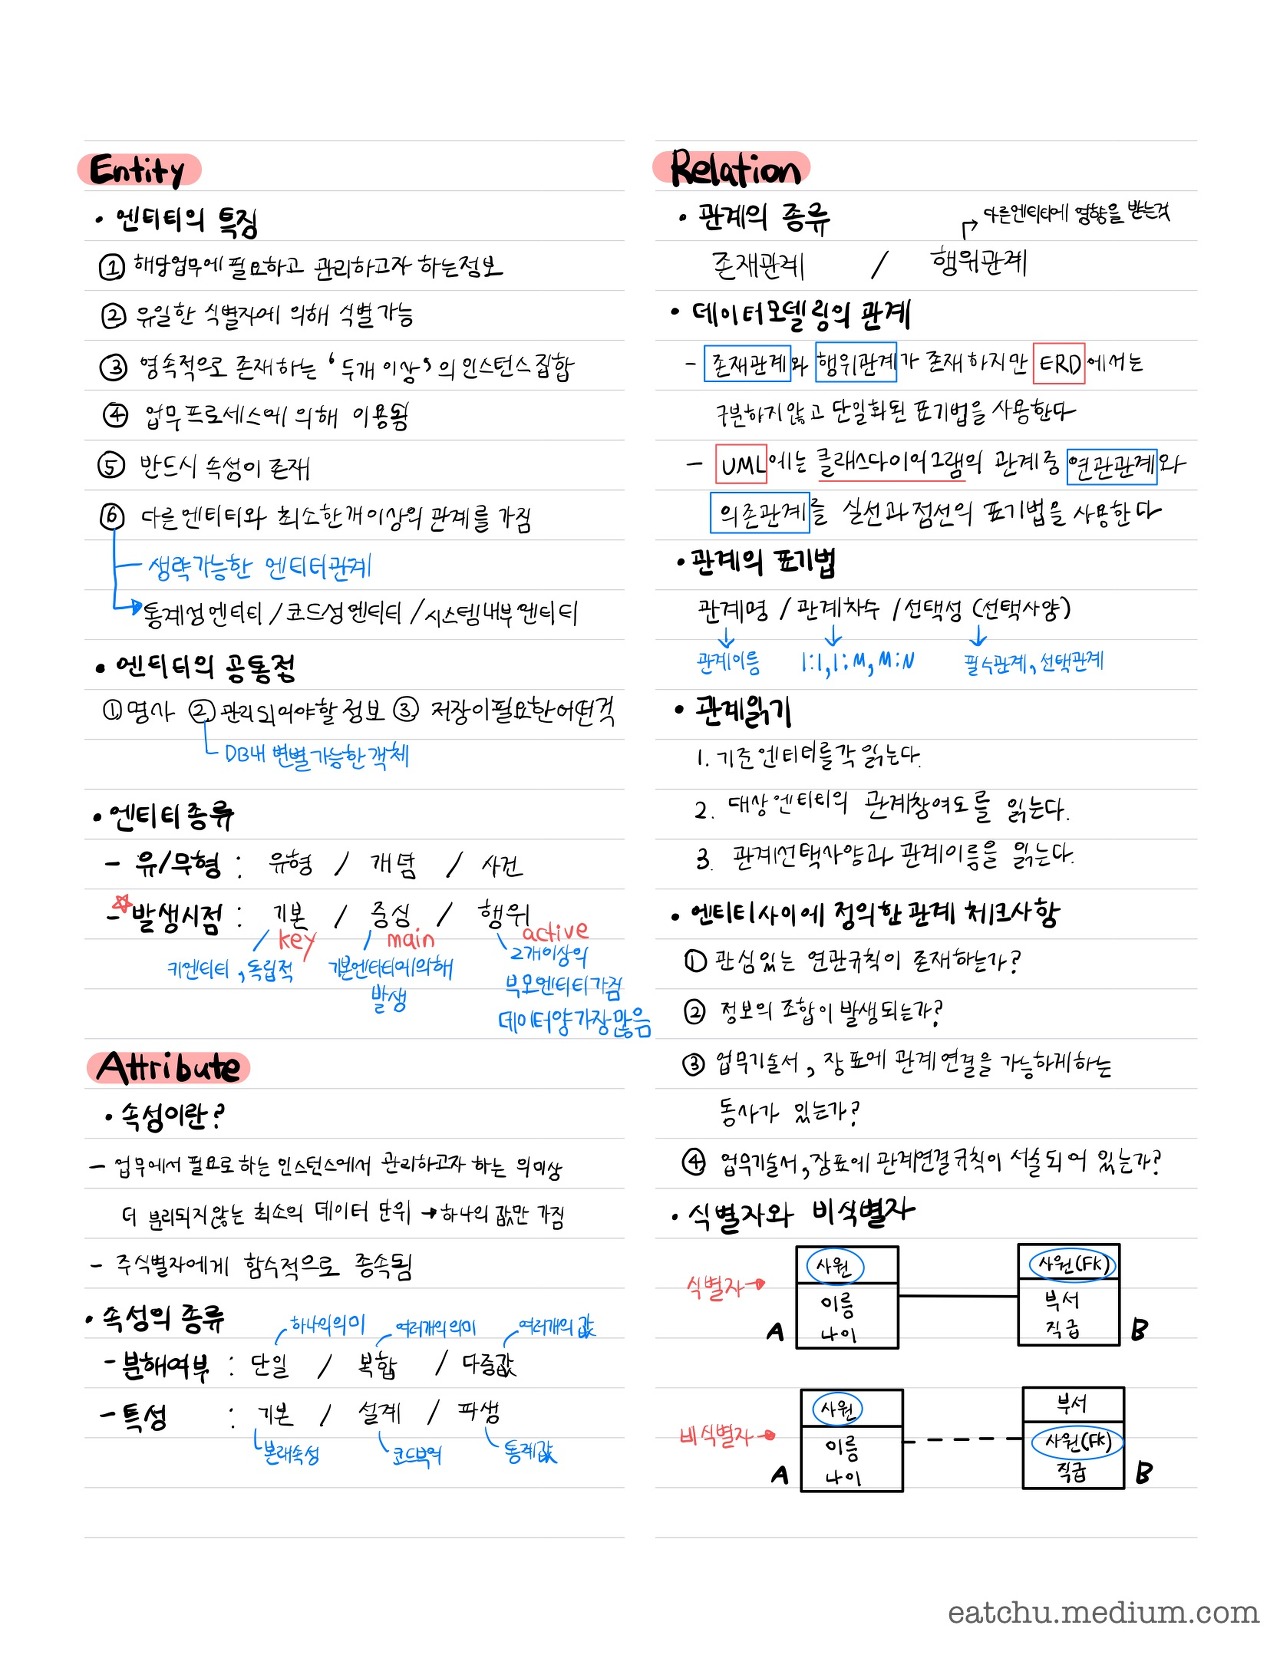 Entity
• 엔티티의 특징
① 해당업무에 필요하고 관리하고자 하는 정보
② 유일한 식별자에 의해 식별 가능
③ 영속적으로 존재하는 '두개 이상'의 인스턴스 집합
④ 업무프로세스에 의해 이용됨
⑤ 반드시 속성이 존재
⑥ 다른 엔티티와 최소 한개 이상의 관계를 가짐
생략가능한 엔티티관계
통계성 엔티티 / 코드성 엔티티 / 시스템 내부 엔티티
• 엔티티의 공통점
① 명사 ② 관리되어야할 정보 ③ 저장이 필요한 어떤것
DB내 변별가능한 객체
• 엔티티 종류
- 유/무형 : 유형 / 개념 / 사건
- ☆발생시점 : 기본 / 중심 / 행위
key main active
키엔티티, 독립적
기본엔티티에 의해
발생
2개이상의
부모엔티티가짐
데이터양 가장 많음
Attribute
• 속성이란?
- 업무에서 필요로 하는 인스턴스에서 관리하고자 하는 의미상
더 분리되지 않는 최소의 데이터 단위 → 하나의 값만 가짐
- 주식별자에게 함수적으로 종속됨
• 속성의 종류
하나의 의미 여러개의 의미 여러개의 값
- 분해여부 : 단일 / 복합 / 다중값
- 특성 : 기본 / 설계 / 파생
본래속성 코드부여 통계값
Relation
• 관계의 종류
다른엔티티에 영향을 받는것
존재관계 / 행위관계
• 데이터 모델링의 관계
- 존재관계와 행위관계가 존재하지만 ERD에서는
구분하지 않고 단일화된 표기법을 사용한다
- UML에는 클래스다이어그램의 관계중 연관관계와
의존관계를 실선과 점선의 표기법을 사용한다
• 관계의 표기법
관계명 / 관계차수 / 선택성 (선택사양)
관계이름 1:1, 1:M, M:N 필수관계, 선택관계
• 관계읽기
1. 기준 엔티티를 각 읽는다.
2. 대상 엔티티의 관계참여도를 읽는다.
3. 관계선택사양과 관계이름을 읽는다.
• 엔티티 사이에 정의한 관계 체크사항
① 관심있는 연관규칙이 존재하는가?
② 정보의 조합이 발생되는가?
③ 업무기술서, 장표에 관계연결을 가능하게하는
동사가 있는가?
④ 업무기술서, 장표에 관계연결 규칙이 서술되어 있는가?
• 식별자와 비식별자
식별자 →
사원
이름
나이
A
사원(FK)
부서
직급
B
비식별자 →
사원
이름
나이
A
부서
사원(FK)
직급
B
eatchu.medium.com